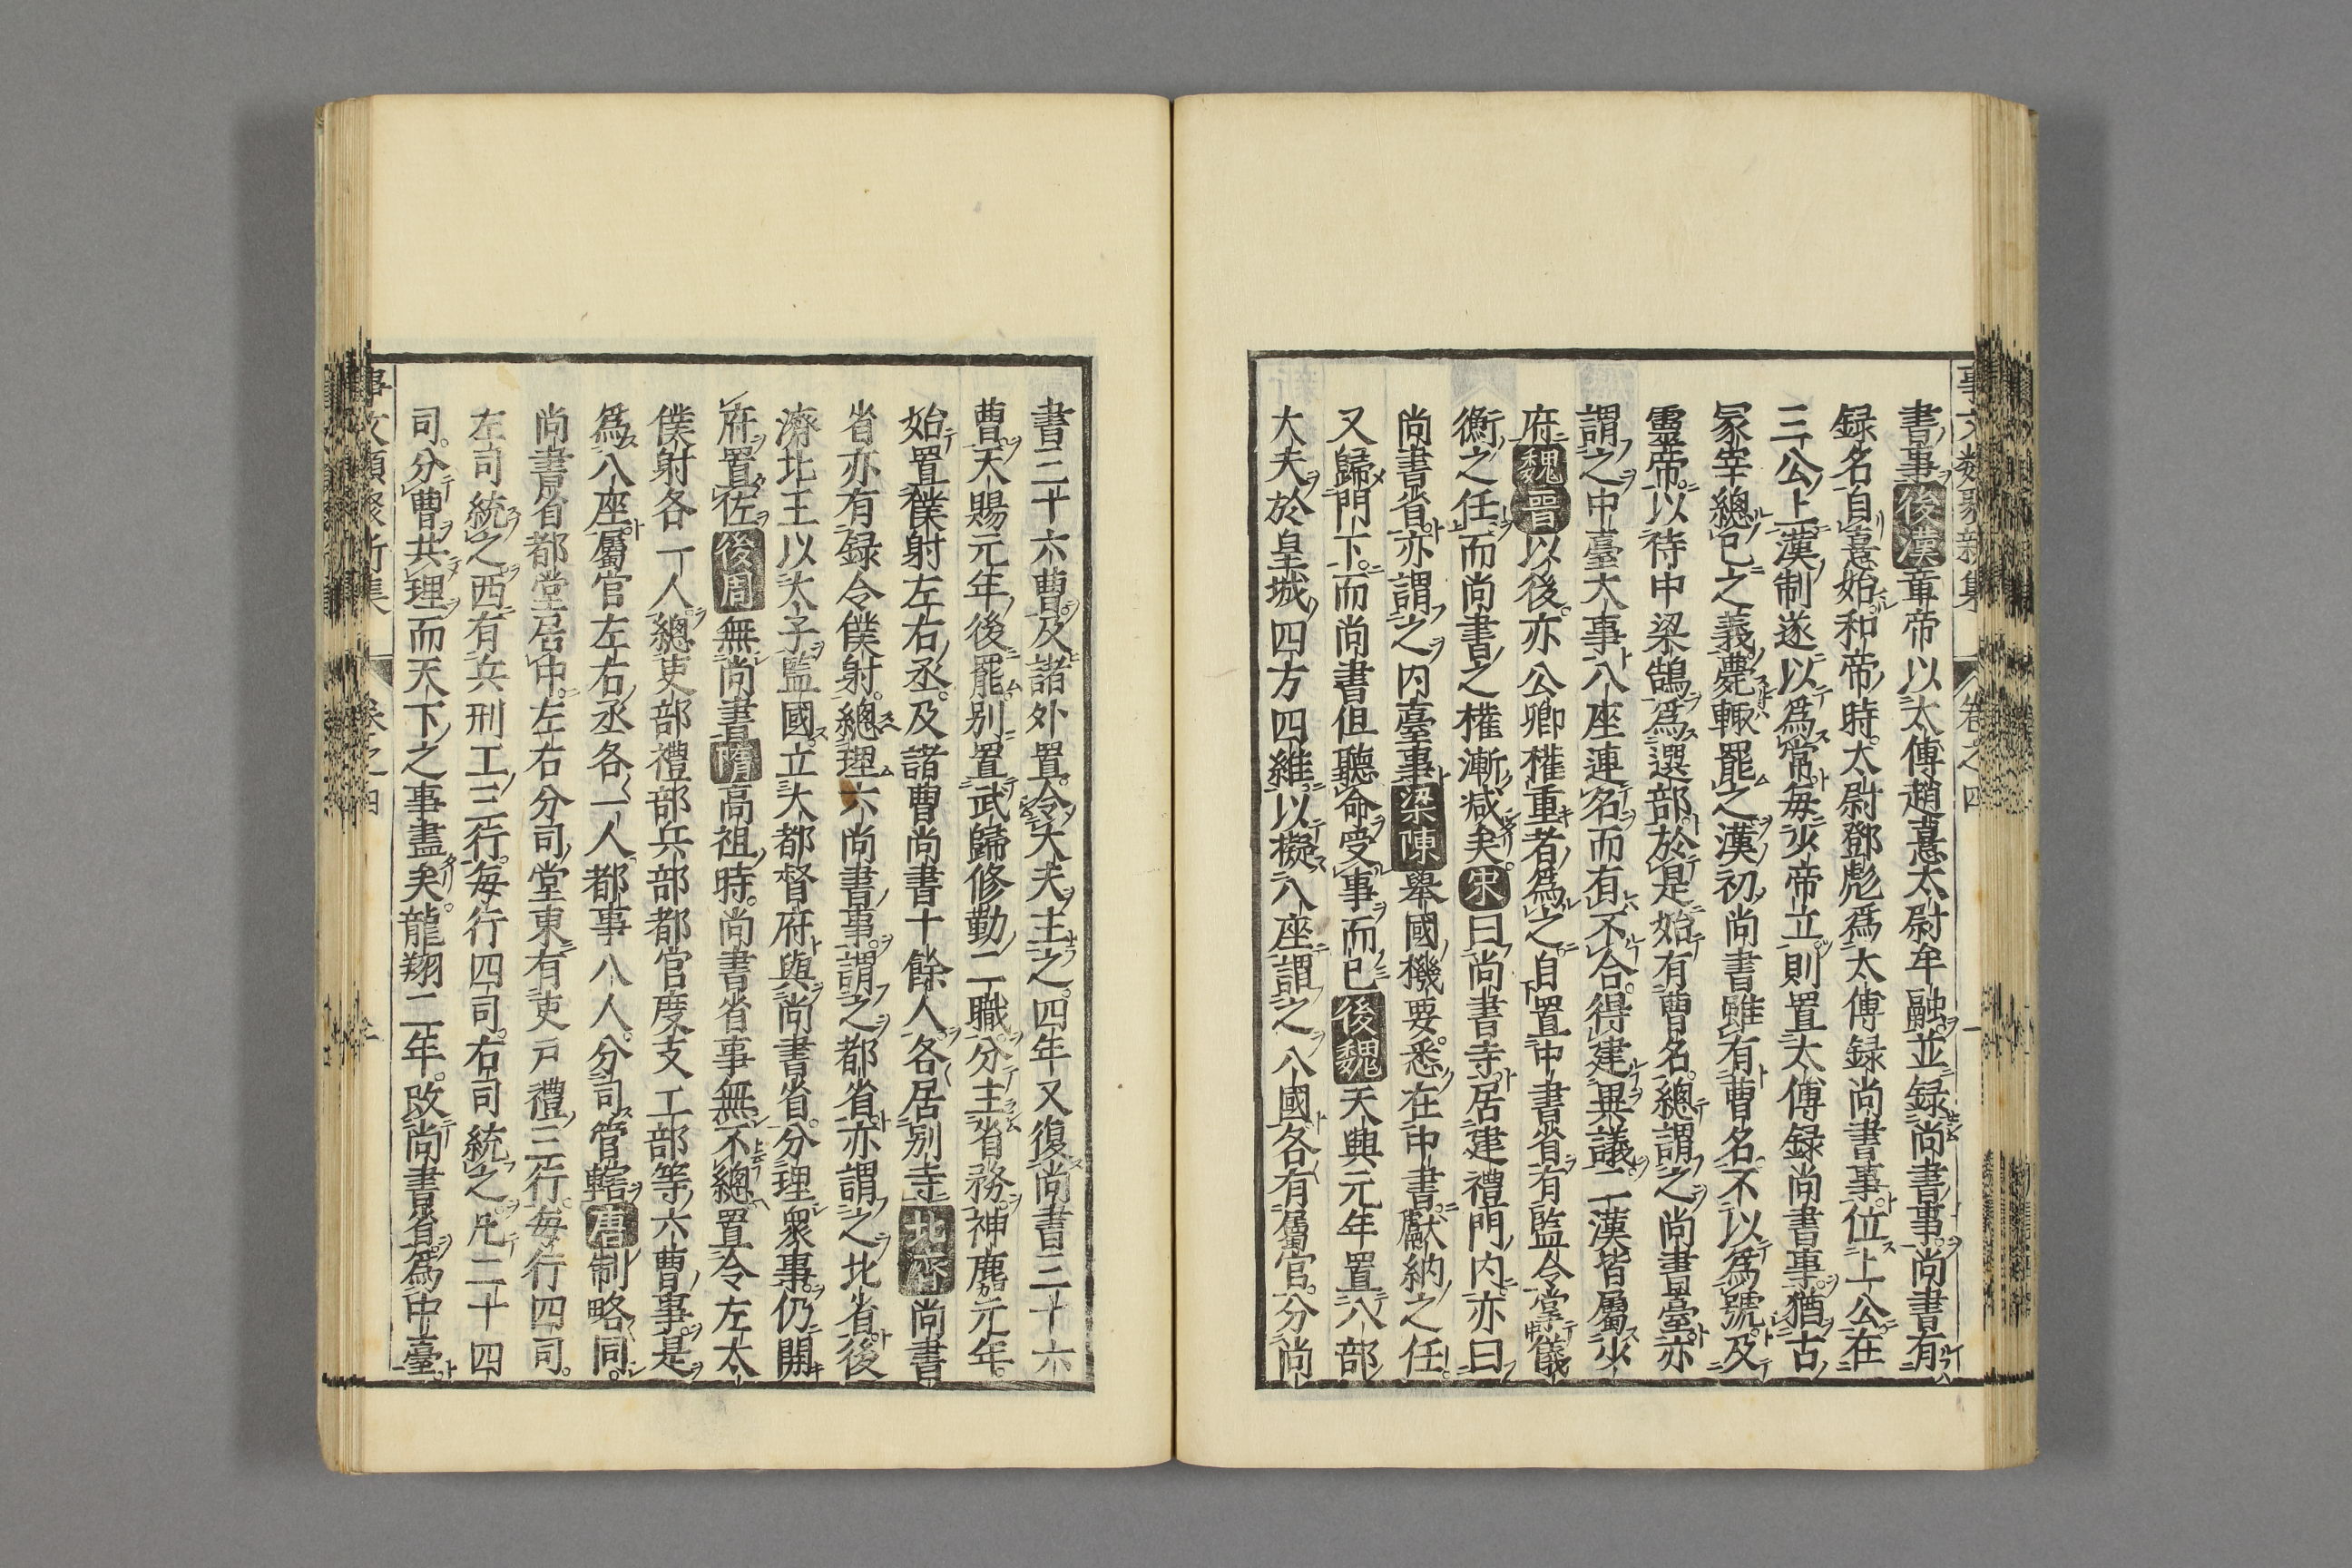 書事後漢章帝以太傅趙憙太尉牟融並録尚書事尚書有
録名自憙始和帝時太尉鄧彪爲太傅録尚書事位上公在
三公上漢制遂以爲常毎少帝立則置太傅録尚書事猶古
冢宰總己之義薨輙罷之漢初尚書雖有曹名不以爲號及
靈帝以待中梁鵠爲選部於是始有曹名總謂之尚書臺亦
謂之中臺大事八座連名而有不合得建異議二漢皆屬少
府魏晋以後亦公卿權重者爲之自置中書省有監令掌儀
衡之任而尚書之權漸減矣宋曰尚書寺居建禮門内亦曰
尚書省亦謂之内臺事梁陳舉國機要悉在中書獻納之任
又歸門下而尚書但聽命受事而已後魏天興元年置八部
大夫於皇城四方四維以擬八座謂之八國各有屬官分尚
書三十六曹及諸外置令大夫主之四年又復尚書三十六
曹天賜元年後罷別置武歸修勤二職分主省務神䴥元年
始置僕射左右丞及諸曹尚書十餘人各居别寺北齊尚書
省亦有録令僕射總理六尚書事謂之都省亦謂之北省後
濟北王以大子監國立大都督府與尚書省分理衆事仍開
府置佐後周無尚書隋高祖時尚書省事無不總置令左太
僕射各一人總吏部禮部兵部都官度支工部等六曹事是
爲八座屬官左右丞各一人都事八人分司管轄唐制略同
尚書省都堂居中左右分司堂東有吏戸禮三行毎行四司
左司統之西有兵刑工三行毎行四司右司統之凡二十四
司分曹共理而天下之事盡矣龍翔二年改尚書省爲中臺
事文類聚新集 卷之四